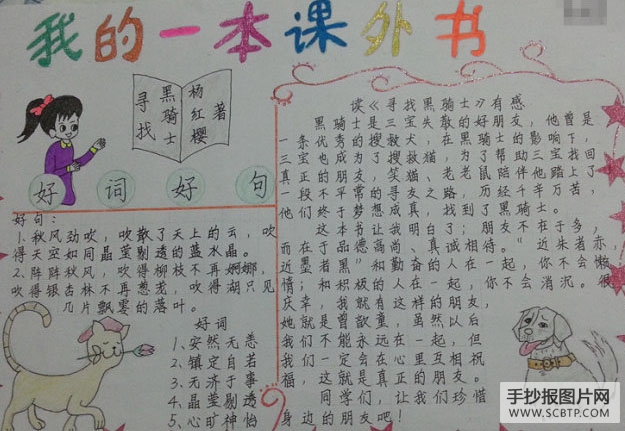 我的一本课外书
寻找
黑骑士
杨红樱
著
好词好句
好句：
1、秋风劲吹，吹散了天上的云，吹
得天空如同晶莹剔透的蓝水晶。
2、阵阵秋风，吹得柳枝不再婀娜，
吹得银杏林不再葱茏，吹得湖只见
几片飘零的落叶。
好词
1、安然无恙
2、镇定自若
3、无济于事
4、晶莹剔透
5、心旷神怡
读《寻找黑骑士》有感
黑骑士是三宝失散的好朋友，他曾是
一条优秀的搜救犬，在黑骑士的影响下，
三宝也成为了搜救猫，为了帮助三宝找回
真正的朋友，笑猫、老老鼠陪伴他踏上了
一段不平常的寻友之路，历经千辛万苦，
他们终于梦想成真，找到了黑骑士。
这本书让我明白了；朋友不在于多，
而在于品德高尚、真诚相待。"近朱者赤，
近墨者黑"和勤奋的人在一起，你不会懒
惰；和积极的人在一起，你不会消沉。很
庆幸，我就有这样的朋友，
她就是曾歆童，虽然以后
我们不能永远在一起，但
我们一定会在心里互相祝
福，这就是真正的朋友。
同学们，让我们珍惜
身边的朋友吧！
手抄报图片网
WWW.SCBTP.COM